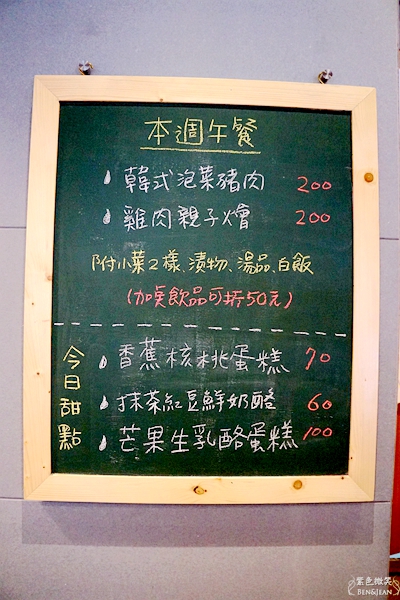 本週午餐
韓式泡菜豬肉 200
雞肉親子燴 200
附小菜2樣、漬物、湯品、白飯
(加点飲品可折50元)
今日甜點
香蕉核桃蛋糕 70
抹茶紅豆鮮奶酪 60
芒果生乳酪蛋糕 100
紫色微笑
BEN&JEAN